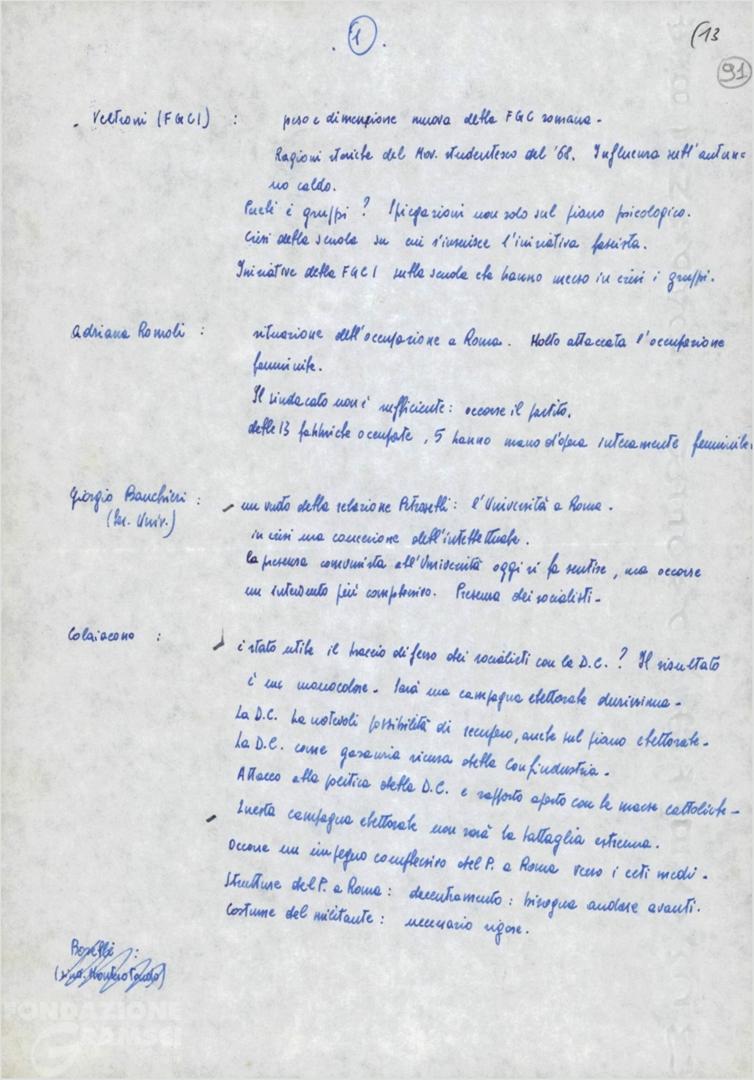 . 1 .
(13
91
. Veltroni (FGCI) : peso e dimensione nuova della FGC romana -
Ragioni storiche del Mov. studentesco del '68. Influenza sull'autun=
no caldo.
Quali i gruppi? Spiegazioni non solo sul piano psicologico.
Crisi della scuola su cui s'inserisce l'iniziativa fascista.
Iniziative della FGCI sulla scuola che hanno messo in crisi i gruppi.
Adriana Romoli : situazione dell'occupazione a Roma. Molto attaccata l'occupazione
femminile.
Il sindacato non è sufficiente: occorre il partito.
delle 13 fabbriche occupate, 5 hanno mano d'opera interamente femminile.
Giorgio Bauchieri : un vuoto della relazione Petroselli: l'Università a Roma.
(Sez. Univ.) in crisi una concezione dell'intellettuale.
la presenza comunista all'Università oggi si fa sentire, ma occorre
un intervento più complessivo. Presenza dei socialisti -
Colaiacono : è stato utile il braccio di ferro dei socialisti con la D.C.? Il risultato
è un monocolore - Sarà una campagna elettorale durissima -
La D.C. ha notevoli possibilità di recupero, anche sul piano elettorale -
La D.C. come garanzia sicura della Confindustria -
Attacco alla politica della D.C. e rapporto aperto con le masse cattoliche -
Questa campagna elettorale non sarà la battaglia estrema.
Occorre un impegno complessivo del P. a Roma verso i ceti medi -
Strutture del P. a Roma: decentramento: bisogna andare avanti.
Costume del militante: necessario rigore.
:
FONDAZIONE
GRAMSCI